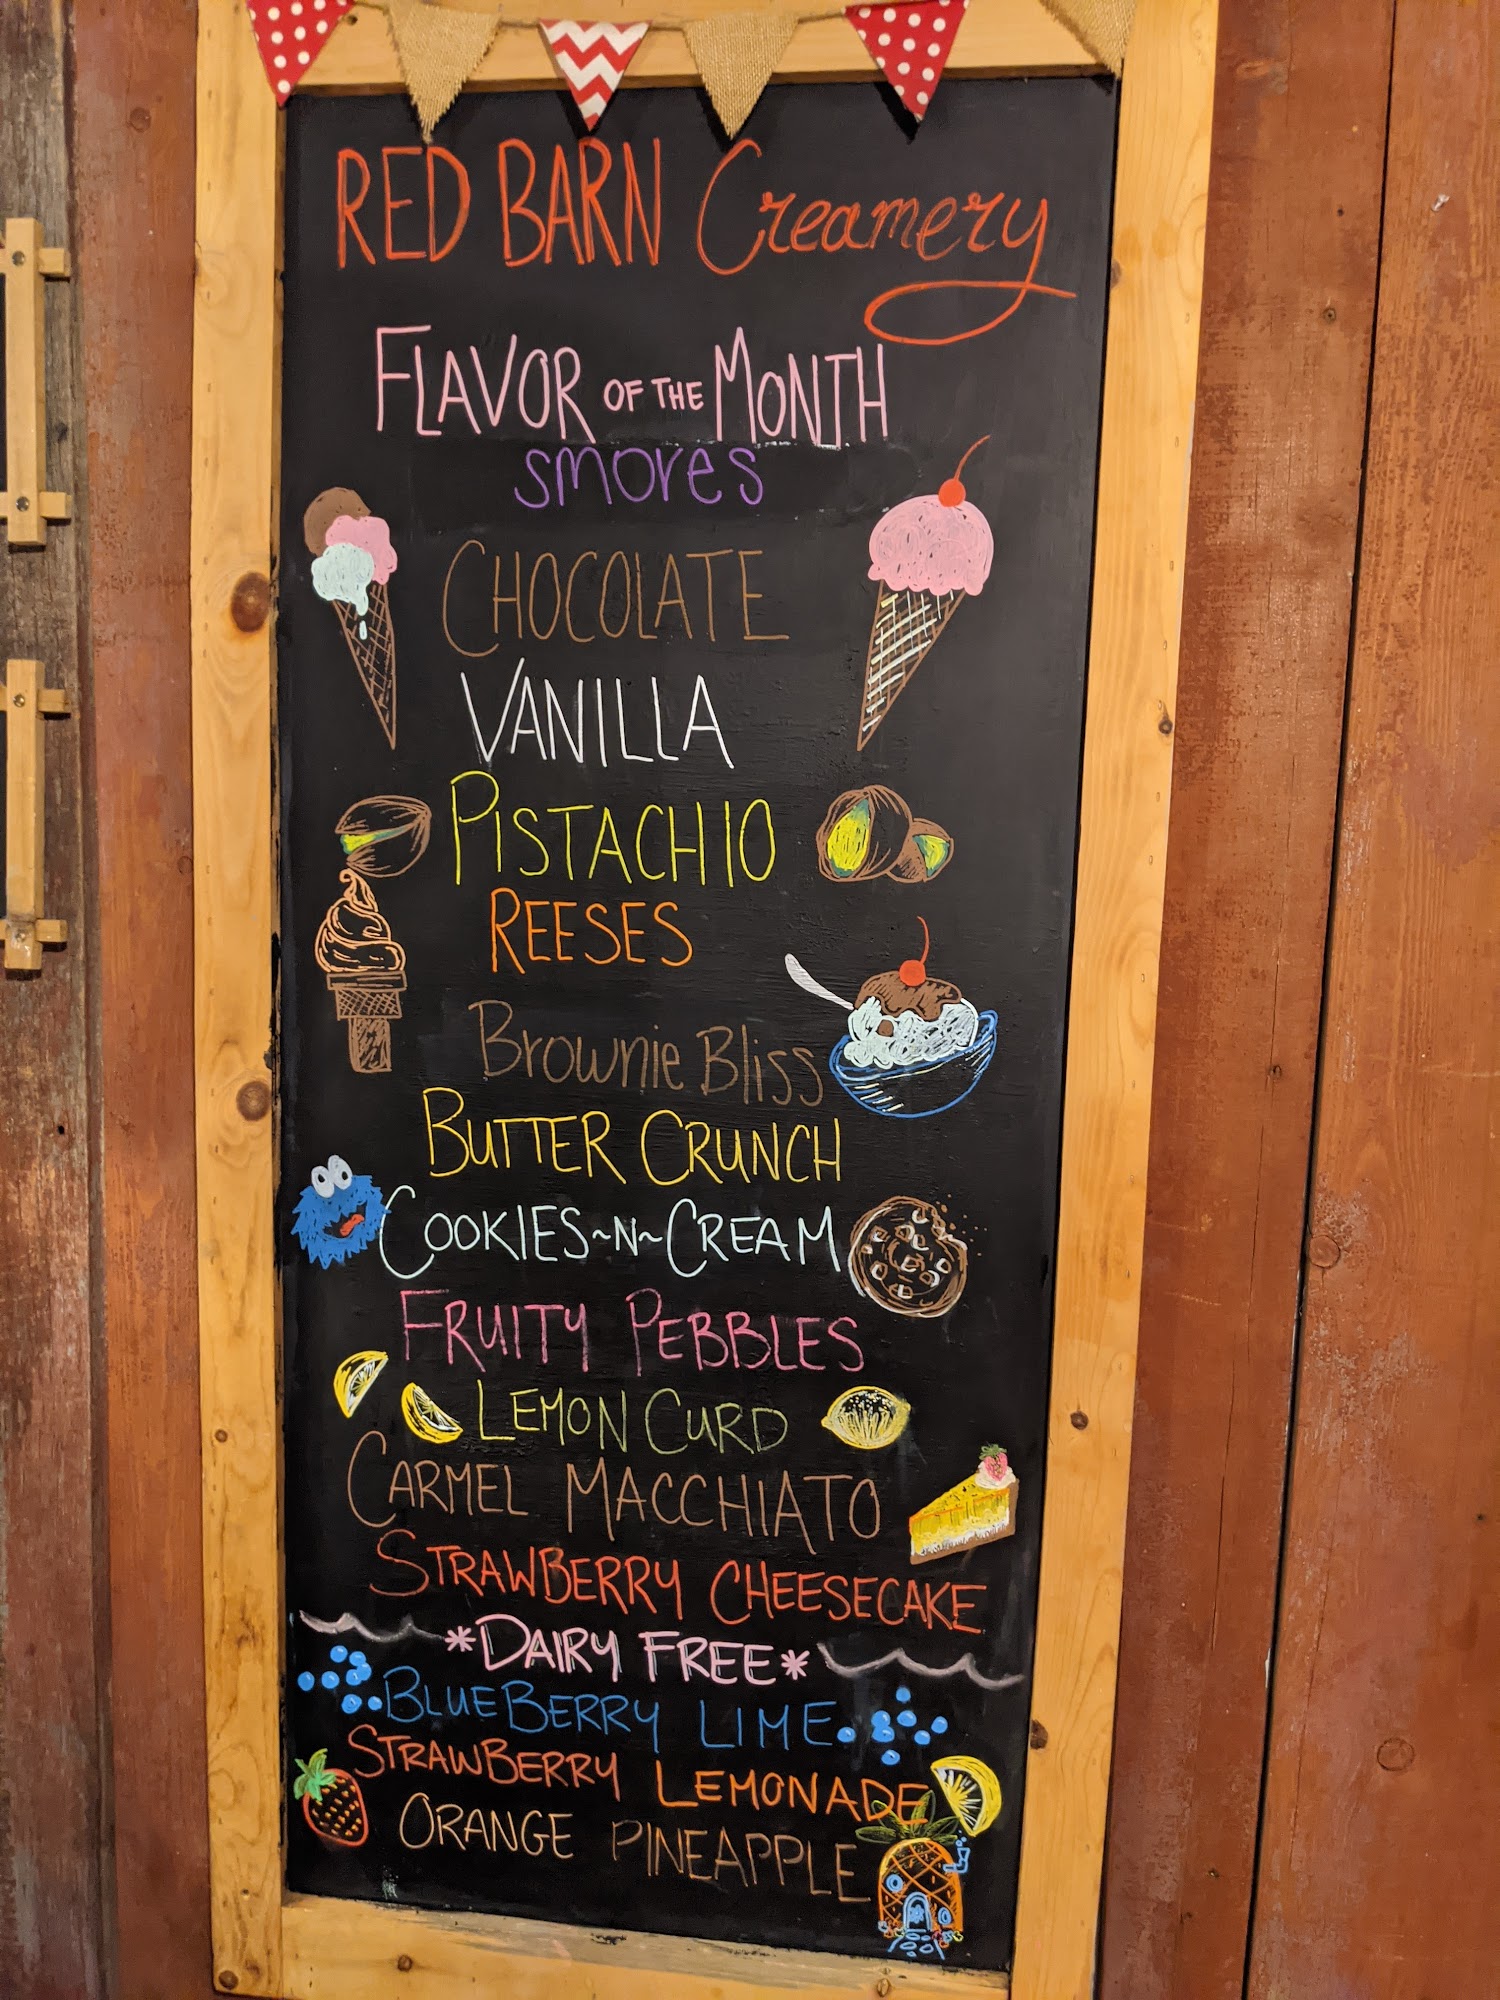 RED BARN Creamery
FLAVOR OF THE MONTH
smores
CHOCOLATE
VANILLA
PISTACHIO
REESES
Brownie Bliss
BUTTER CRUNCH
COOKIES~N~CREAM
FRUITY PEBBLES
LEMON CURD
CARMEL MACCHIATO
STRAWBERRY CHEESECAKE
*DAIRY FREE*
BLUEBERRY LIME
STRAWBERRY LEMONADE
ORANGE PINEAPPLE